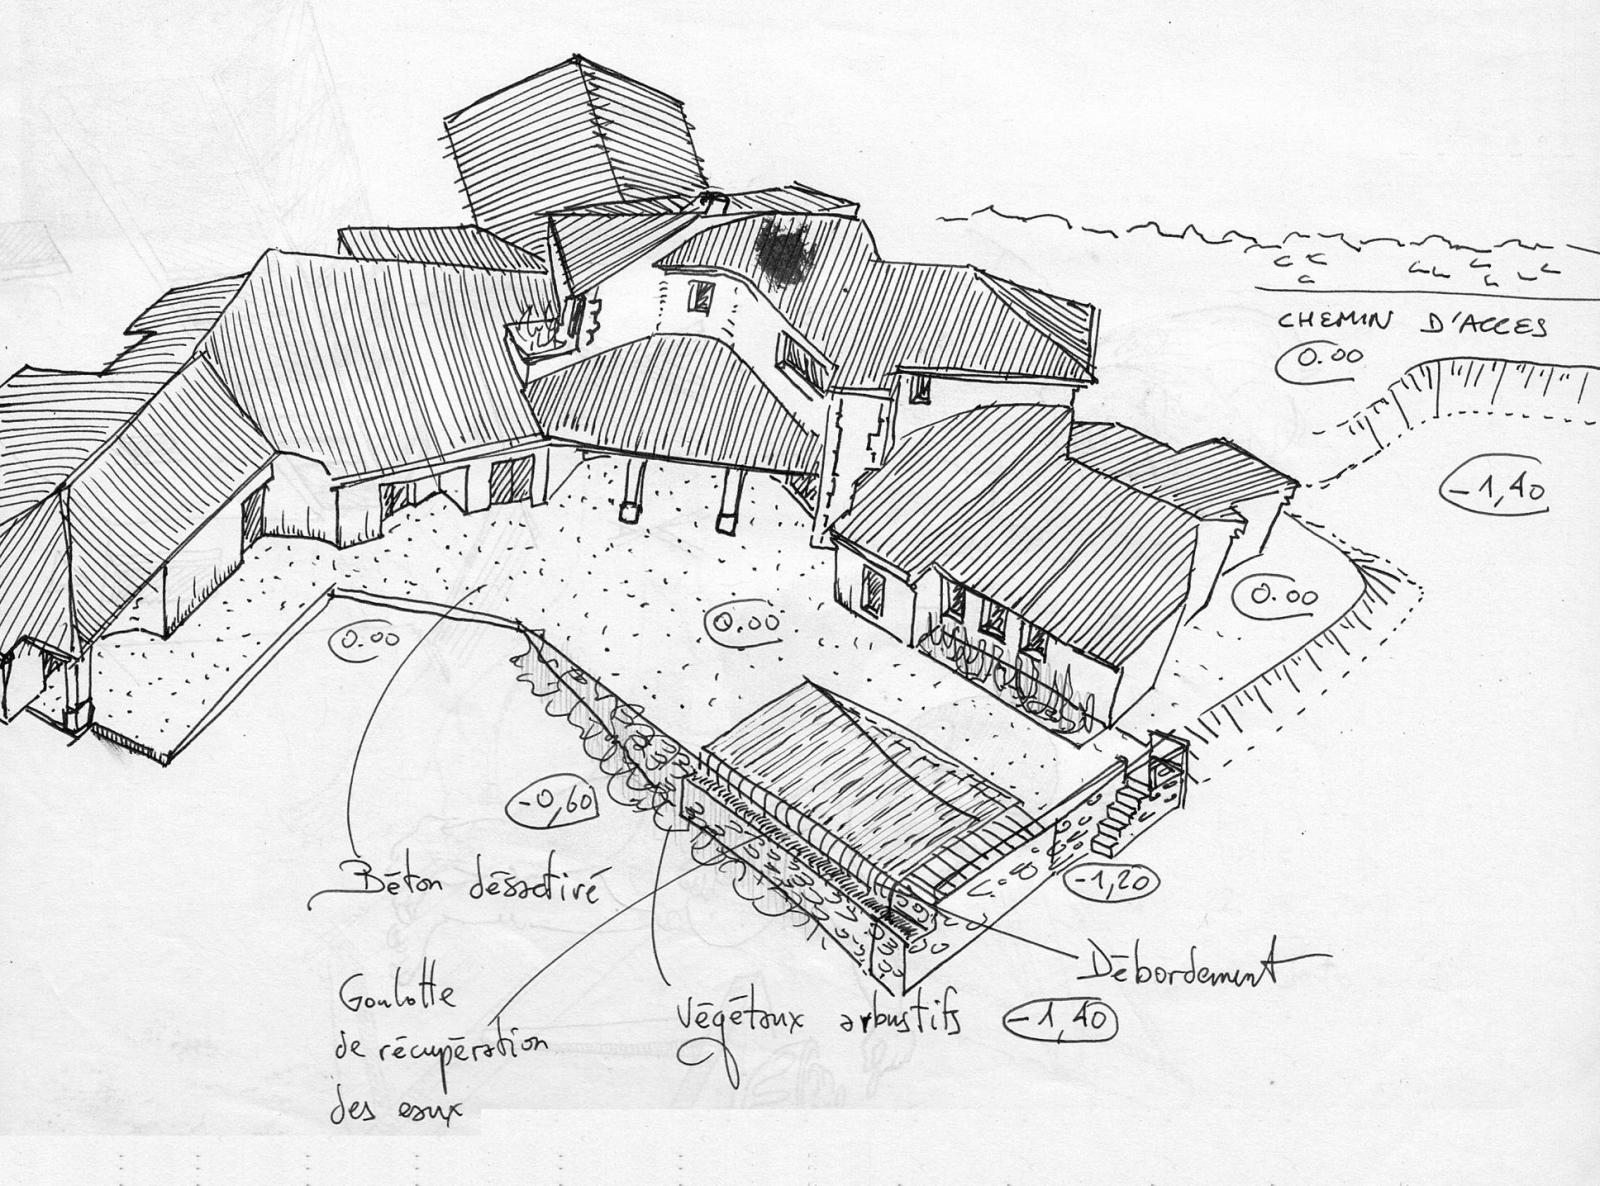 CHEMIN D'ACCES
0.00
-1,40
0.00
0.00
0.00
-0,60
-1,20
Béton désactivé
Débordement
Goulotte
de récupération
des eaux
Végétaux arbustifs
-1,40